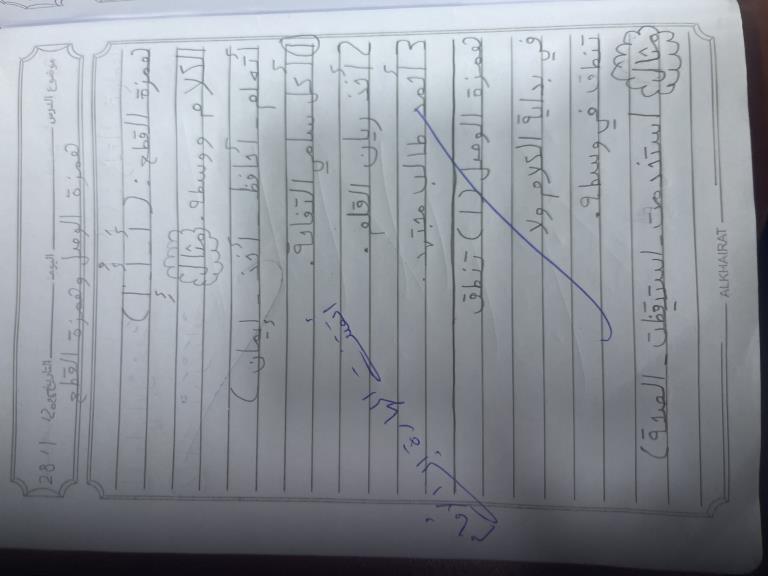 موضوع الدرس اليوم التاريخ 28.11
همزة الوصل وهمزة القطع
همزة القطع : ( أ - أُ - إ )
الكلام ووسطه. مثال
أتعلم - أحافظ - أخذ - إيمان )
1 أكل سامي التفاحة.
2 أخذ ريان القلم.
3 أحمد طالب مجتهد.
همزة الوصل (ا) تنطق
في بداية الكلام ولا
تنطق في وسطه.
مثال استخدمت - استيقظت -
ALKHAIRAT